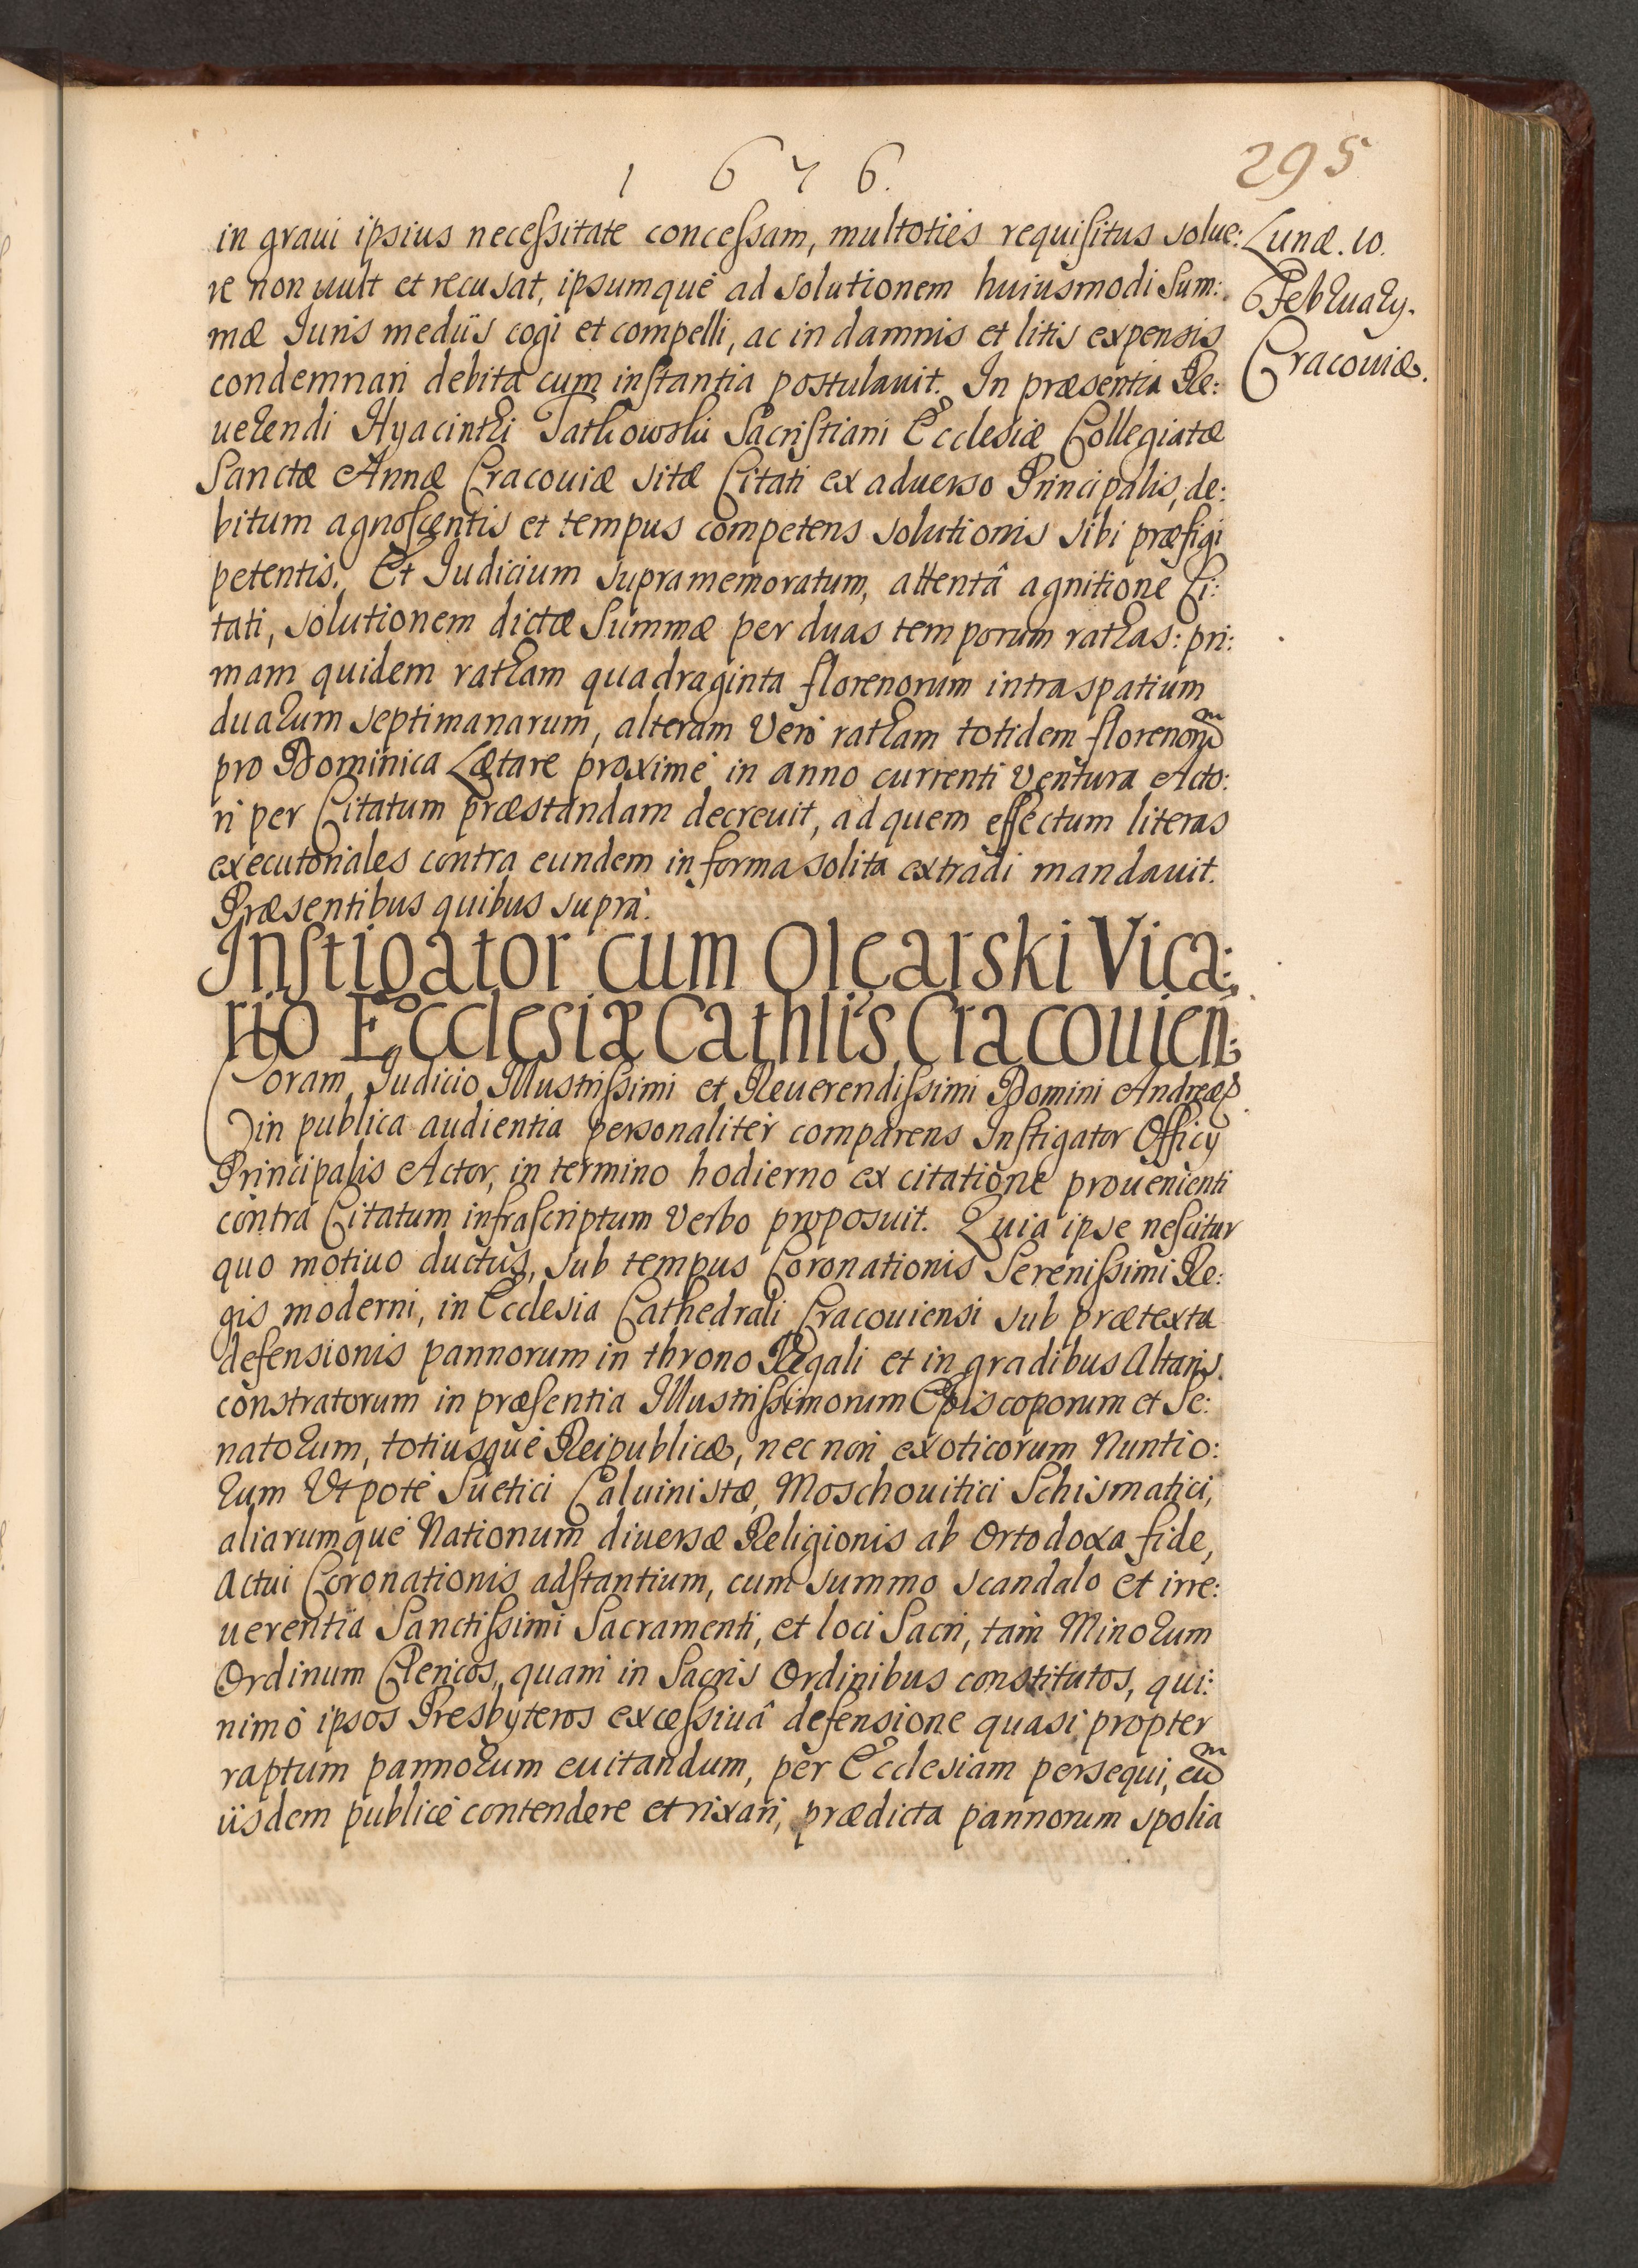 1 6 7 6.
295
in graui ipsius necessitate concessam, multoties requisitus solue:
re non uult et recusat, ipsumque ad solutionem huiusmodi Sum:
mæ Iuris medijs cogi et compelli, ac in damnis et litis expensis
condemnari debita cum instantia postulauit. In præsentia Re:
uerendi Hyacinthi Sacristiani Ecclesiæ Collegiatæ
Sanctæ Annæ Cracouiæ sitæ Citati ex aduerso Principalis, de:
bitum agnoscentis et tempus competens solutionis sibi præfigi
petentis. Et Iudicium supramemoratum, attentâ agnitione Ci:
tati, solutionem dictæ Summæ per duas temporum rathas: pri:
mam quidem ratham quadraginta florenorum intra spatium
duarum septimanarum, alteram Verò ratham totidem florenorũ
pro Dominica Lætare proximè in anno currenti Ventura Acto:
ri per Citatum præstandam decreuit, ad quem effectum literas
executoriales contra eundem in forma solita extradi mandauit.
Præsentibus quibus suprà.
Instigator cum Olearski Vica:
rio Ecclesiæ Cathlis Cracouien:
Coram Iudicio Illustrissimi et Reuerendissimi Domini Andreæ
in publica audientia personaliter comparens Instigator Officij
Principalis Actor, in termino hodierno ex citatione prouenienti
contra Citatum infrascriptum Verbo proposuit. Quia ipse nescitur
quo motiuo ductus, sub tempus Coronationis Serenissimi Re:
gis moderni, in Ecclesia Cathedrali Cracouiensi sub prætextu
defensionis pannorum in throno Regali et in gradibus Altaris
constratorum in præsentia Illustrissimorum Episcoporum et Se:
natorum, totiusque Reipublicæ, nec non exoticorum Nuntio:
rum Vtpotè Suetici Caluinistæ, Moschouitici Schismatici,
aliarumque Nationum diuersæ Religionis ab Ortodoxa fide,
Actui Coronationis adstantium, cum summo scandalo et irre:
uerentia Sanctissimi Sacramenti, et loci Sacri, tam Minorum
Ordinum Clericos, quam in Sacris Ordinibus constitutos, qui:
nimò ipsos Presbyteros excessiuâ defensione quasi propter
raptum pannorum euitandum, per Ecclesiam persequi, cũ
ijsdem publicè contendere et rixari, prædicta pannorum spolia
Lunæ. 10.
February.
Cracouiæ.